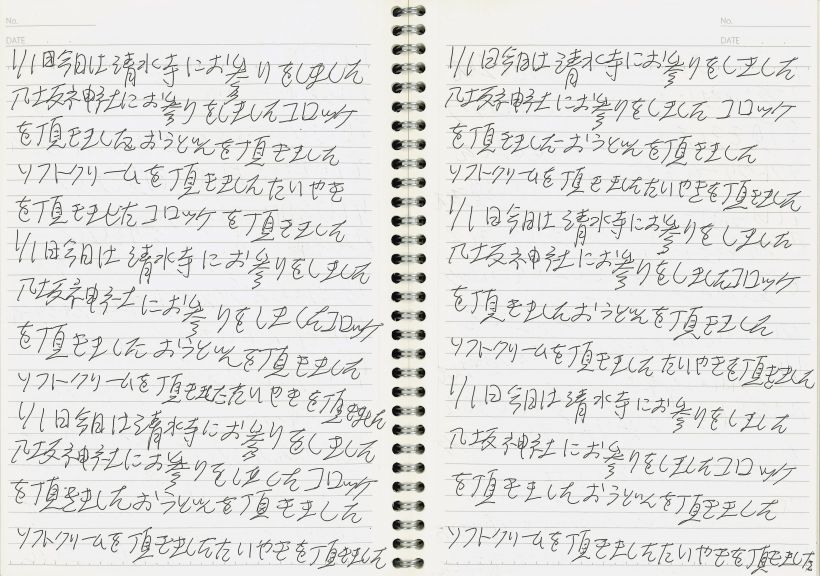 No.
DATE
1/1日今日は清水寺にお参りをしました
八坂神社にお参りをしましたコロッケ
を頂きましたおうどんを頂きました
ソフトクリームを頂きましたたいやき
を頂きましたコロッケを頂きました
1/1日今日は清水寺にお参りをしました
八坂神社にお参りをしましたコロッケ
を頂きましたおうどんを頂きました
ソフトクリームを頂きましたたいやきを頂きました
1/1日今日は清水寺にお参りをしました
八坂神社にお参りをしましたコロッケ
を頂きましたおうどんを頂きました
ソフトクリームを頂きましたたいやきを頂きました
No.
DATE
1/1日今日は清水寺にお参りをしました
八坂神社にお参りをしましたコロッケ
を頂きましたおうどんを頂きました
ソフトクリームを頂きましたたいやきを頂きました
1/1日今日は清水寺にお参りをしました
八坂神社にお参りをしましたコロッケ
を頂きましたおうどんを頂きました
ソフトクリームを頂きましたたいやきを頂きました
1/1日今日は清水寺にお参りをしました
八坂神社にお参りをしましたコロッケ
を頂きましたおうどんを頂きました
ソフトクリームを頂きましたたいやきを頂きました